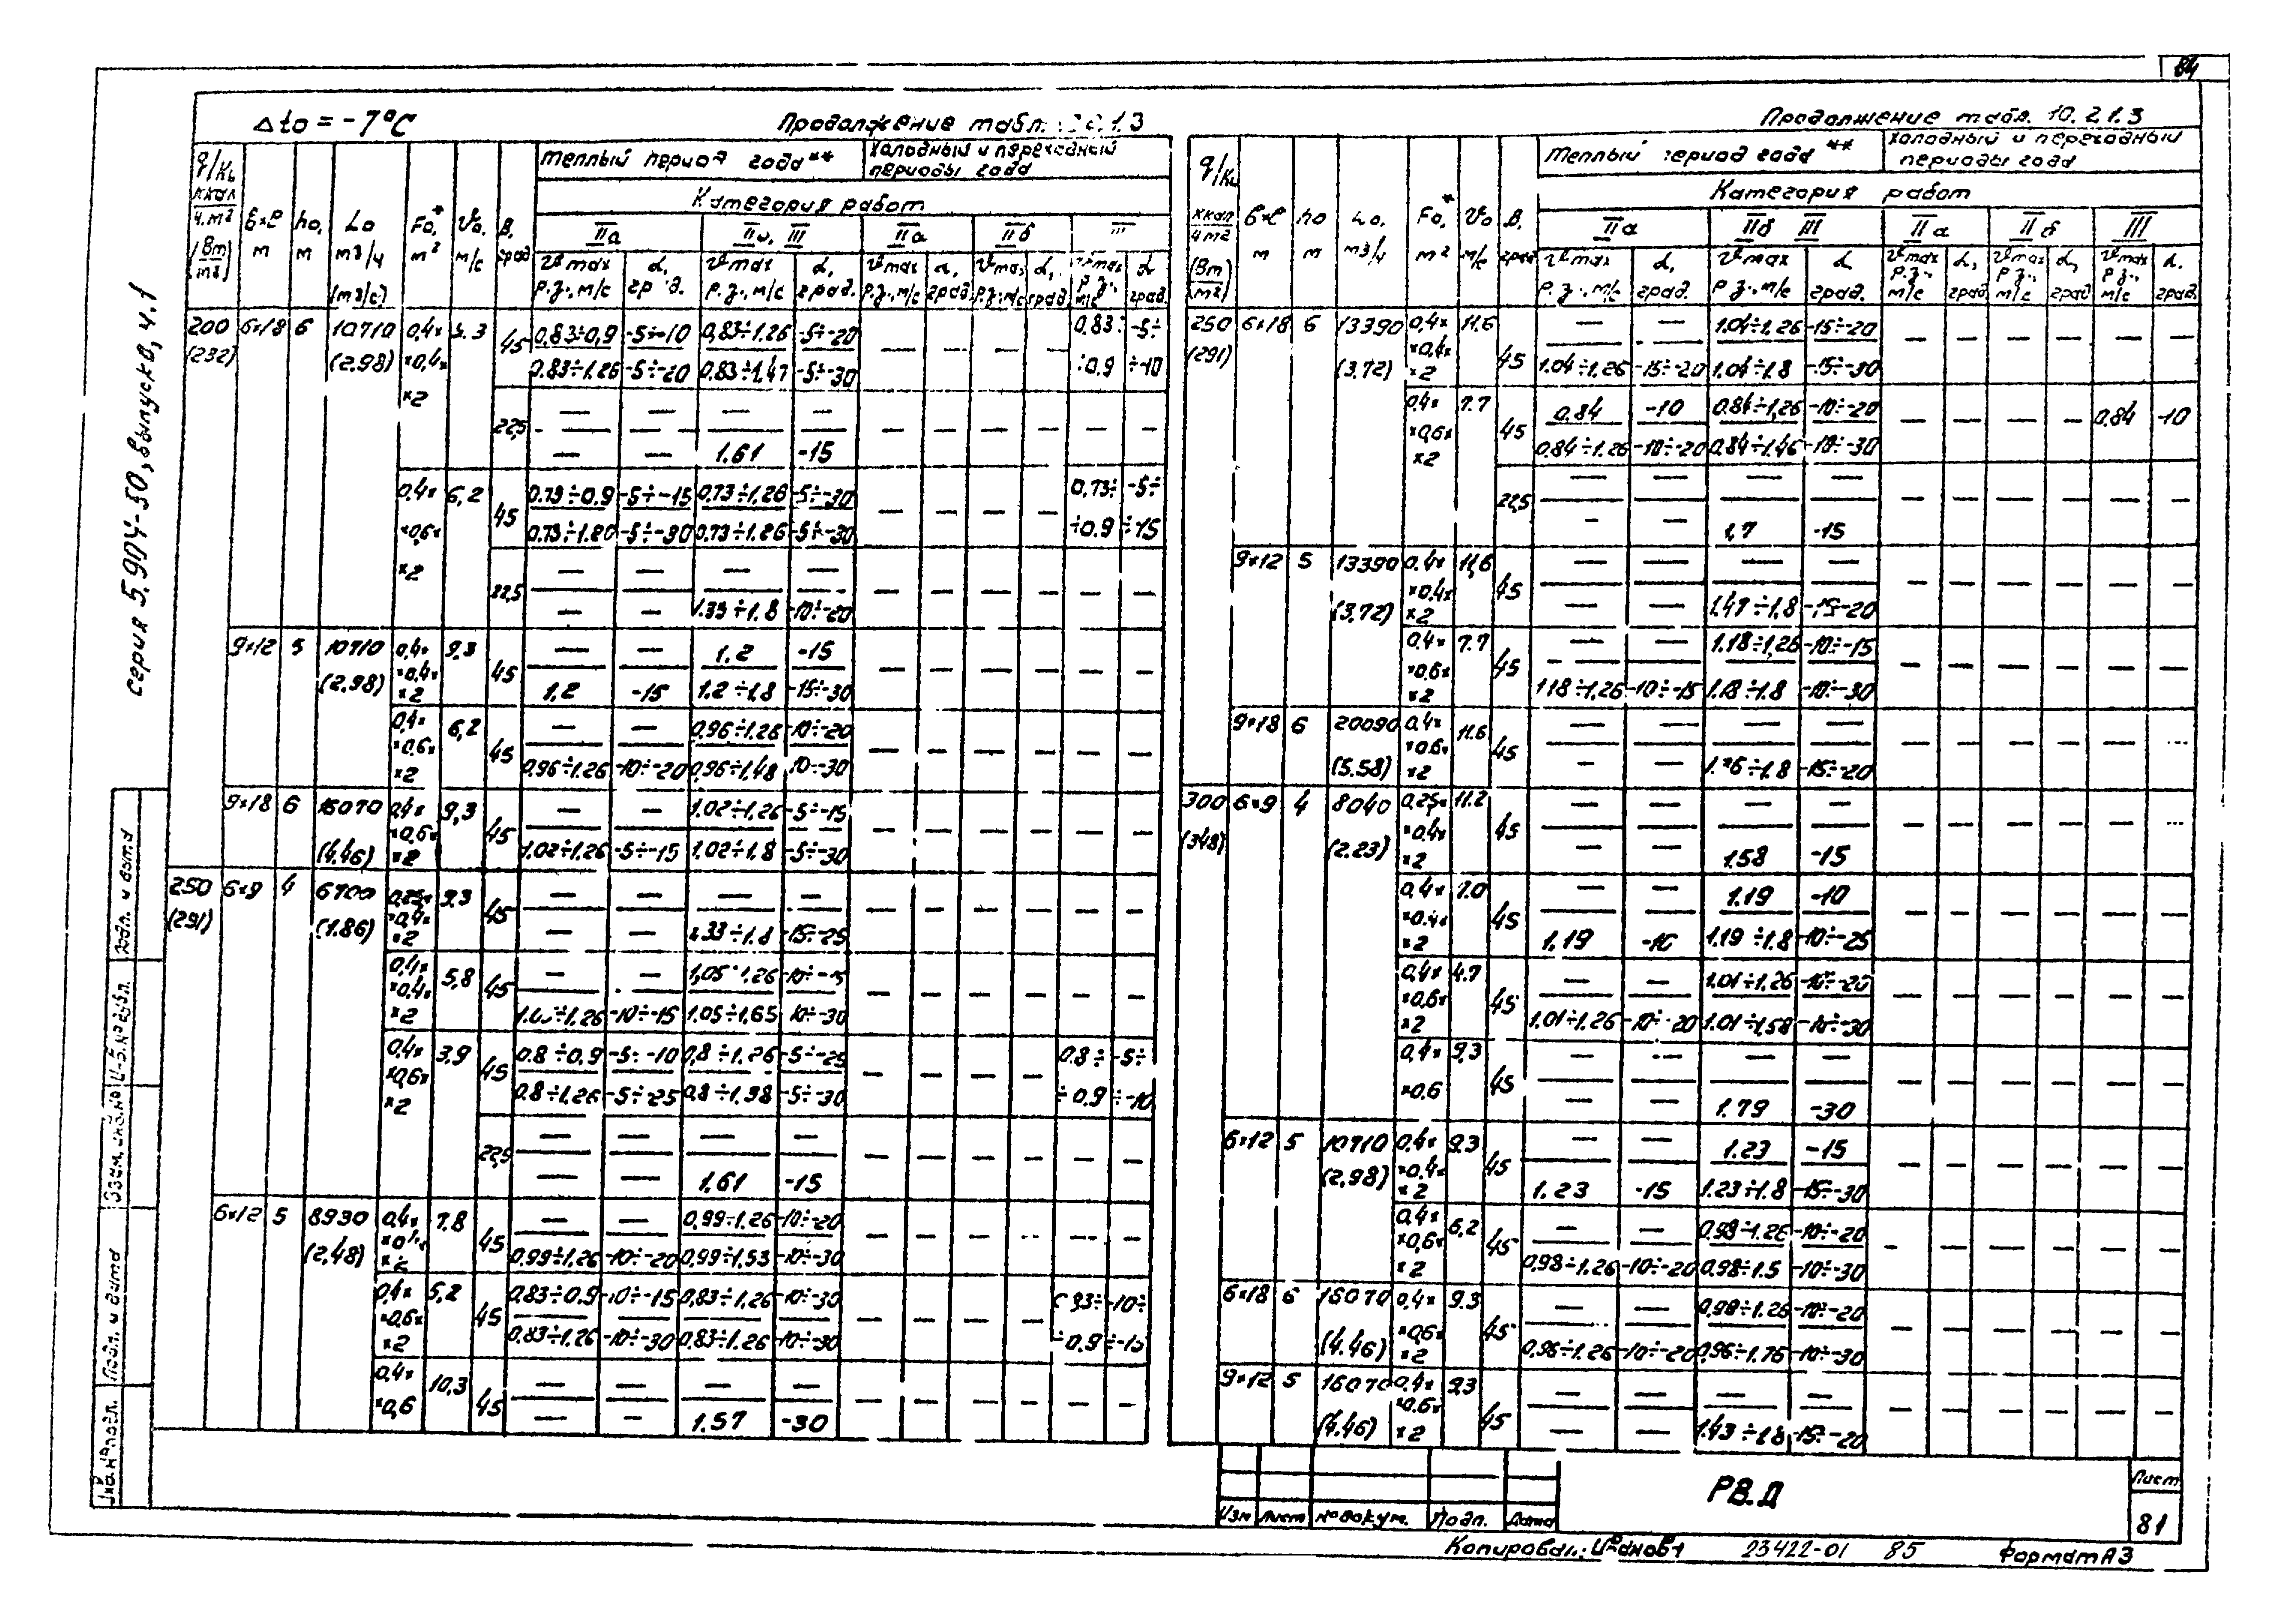 84
Δto = -7°С
Продолжение табл.
Теплый период года**
Холодный и переходный периоды года
Категория работ
q/кь ккал/ч.м² (Вт/м²) | б×ℓ м | ho, м | Lo м³/ч (м³/с) | Fo,* м² | ϑo. м/с | β, град
IIа | III | IIа | IIб | III
ϑmax р.з., м/с | α, град.
200 (232) | 6×18 | 6 | 10710 (2.98) | 0,4× ×0,4× ×2 | 45 | 0,83÷0,9 | -5÷-10 | 0,83÷1.26 | -5÷-20 | — | — | — | — | 0.83÷ ÷0.9 | -5÷ ÷-10
0.83÷1.26 | -5÷-20 | 0.83÷1,47 | -5÷-30
22,5 | — | — | — | — | — | — | — | — | — | —
— | — | 1.61 | -15
0,4× ×0,6× ×2 | 6,2 | 45 | 0.73÷0.9 | -5÷-15 | 0,73÷1.26 | -5÷-30 | — | — | — | — | 0,73÷ ÷0.9 | -5÷ ÷-15
-5÷-30 | -5÷-30
22,5 | — | — | — | — | — | — | — | — | — | —
— | — | ÷1.8 | -10÷-20
9×12 | 5 | 10710 (2,98) | 0,4× ×0,4× ×2 | 9.3 | 45 | — | — | 1.2 | -15 | — | — | — | — | — | —
1,2 | -15 | 1.2÷1.8 | -15÷-30
0,4× ×0,6× ×2 | 6,2 | 45 | — | — | 0,96÷1.26 | -10÷-20 | — | — | — | — | — | —
0,96÷1,26 | -10÷-20 | 0,96÷1,48 | -10÷-30
9×18 | 6 | (4.46) | 0,4× ×0,6× ×2 | 9,3 | 45 | — | — | 1.02÷1.26 | -5÷-15 | — | — | — | — | — | —
1.02÷1,26 | -5÷-15 | 1.02÷1.8 | -5÷-30
250 (291) | 6×9 | 4 | 6700 (1.86) | 0,25× ×0,4× ×2 | 9.3 | 45 | — | — | — | — | — | — | — | — | — | —
— | — | 1.33÷1.8 | -15÷-25
0,4× ×0,4× ×2 | 5,8 | 45 | — | — | 1,05÷1,26 | -10÷-15 | — | — | — | — | — | —
÷1,26 | -10÷-15 | 1.05÷1,65 | -10÷-30
0,4× ×0,6× ×2 | 3,9 | 45 | 0.8÷0.9 | -5÷-10 | 0,8÷1.26 | -5÷-25 | — | — | — | — | 0.8÷ ÷0.9 | -5÷ ÷-10
0.8÷1.26 | -5÷-25 | -5÷-30
22,5 | — | — | — | — | — | — | — | — | — | —
— | — | 1,61 | -15
6×12 | 5 | 8930 (2,48) | 0,4× | 7.8 | 45 | — | — | 0,99÷1.26 | -10÷-20 | — | — | — | — | — | —
0,99÷1,26 | -10÷-20 | 0,99÷1,53 | -10÷-30
0,4× ×0,6× ×2 | 5,2 | 45 | 0,83÷0,9 | -10÷-15 | 0,83÷1,26 | -10÷-30 | — | — | — | — | ÷0.9 | -10÷ ÷-15
0,83÷1.26 | -10÷-30 | 0,83÷1.26 | -10÷-30
0,4× ×0,6 | 10,3 | 45 | — | — | — | — | — | — | — | — | — | —
— | — | 1.57 | -30
Продолжение табл. 10.2.1.3
Теплый период года **
Холодный и переходный периоды года
Категория работ
q/кь ккал/ч м² (Вт/м²) | б×ℓ м | ho м | Lo, м³/ч | Fo,* м² | ϑo м/с | β. град
IIа | IIб III | IIа | IIб | III
ϑmax р.з., м/с | α, град.
250 (291) | 6×18 | 6 | 13390 (3.72) | 0,4× ×0,4× ×2 | 11.6 | 45 | — | — | 1.04÷1.26 | -15÷-20 | — | — | — | — | — | —
1.04÷1.26 | -15÷-20 | 1.04÷1.8 | -15÷-30
0,4× ×0,6× ×2 | 7.7 | 45 | 0.84 | -10 | 0.84÷1,26 | -10÷-20 | — | — | — | — | 0,84 | -10
0.84÷1.26 | -10÷-20 | 0.84÷1.46 | -10÷-30
22,5 | — | — | — | — | — | — | — | — | — | —
— | — | 1,7 | -15
9×12 | 5 | 13390 (3,72) | 0.4× ×0,4× ×2 | 11,6 | 45 | — | — | — | — | — | — | — | — | — | —
— | — | 1.47÷1,8 | -15÷-20
0,4× ×0,6× ×2 | 7.7 | 45 | — | — | 1.18÷1,26 | -10÷-15 | — | — | — | — | — | —
1.18÷1.26 | -10÷-15 | 1.18÷1.8 | -10÷-30
9×18 | 6 | 20090 (5.58) | 0,4× ×0,6× ×2 | 11.6 | 45 | — | — | — | — | — | — | — | — | — | —
— | — | ÷1.8 | -15÷-20
300 (348) | 6×9 | 4 | 8040 (2.23) | 0,25× ×0,4× ×2 | 11.2 | 45 | — | — | — | — | — | — | — | — | — | —
— | — | 1.58 | -15
0,4× ×0.4× ×2 | 7.0 | 45 | — | — | 1.19 | -10 | — | — | — | — | — | —
1,19 | -10 | 1.19÷1.8 | -10÷-25
0,4× ×0,6× ×2 | 4.7 | 45 | — | — | 1.01÷1.26 | -10÷-20 | — | — | — | — | — | —
1.01÷1.26 | -10÷-20 | 1.01÷1,58 | -10÷-30
0,4× ×0,6 | 9,3 | 45 | — | — | — | — | — | — | — | — | — | —
— | — | 1.79 | -30
6×12 | 5 | 10710 (2,98) | 0,4× ×0,4× ×2 | 9.3 | 45 | — | — | 1.23 | -15 | — | — | — | — | — | —
1.23 | -15 | 1.23÷1.8 | -15÷-30
0,4× ×0,6× ×2 | 6,2 | 45 | — | — | 0,98÷1.26 | -10÷-20 | — | — | — | — | — | —
0,98÷1,26 | -10÷-20 | 0,98÷1.5 | -10÷-30
6×18 | 6 | 16070 (4.46) | 0,4× ×0,6× ×2 | 9.3 | 45 | — | — | ÷1.26 | -10÷-20 | — | — | — | — | — | —
0,96÷1.26 | -10÷-20 | 0,96÷1.76 | -10÷-30
9×12 | 5 | 16070 (4,46) | 0,4× ×0,6× ×2 | 9.3 | 45 | — | — | — | — | — | — | — | — | — | —
— | — | 1.43÷1.8 | -15÷-20
серия 5.904-50, выпуск 0, ч.1
Подп. и дата
Взам. инв.№
Подп. и дата
Инв.№ подл.
Изм Лист № докум. Подп. Дата
РВ.Д
Лист
81
Копировал:
23422-01 85
Формат А3